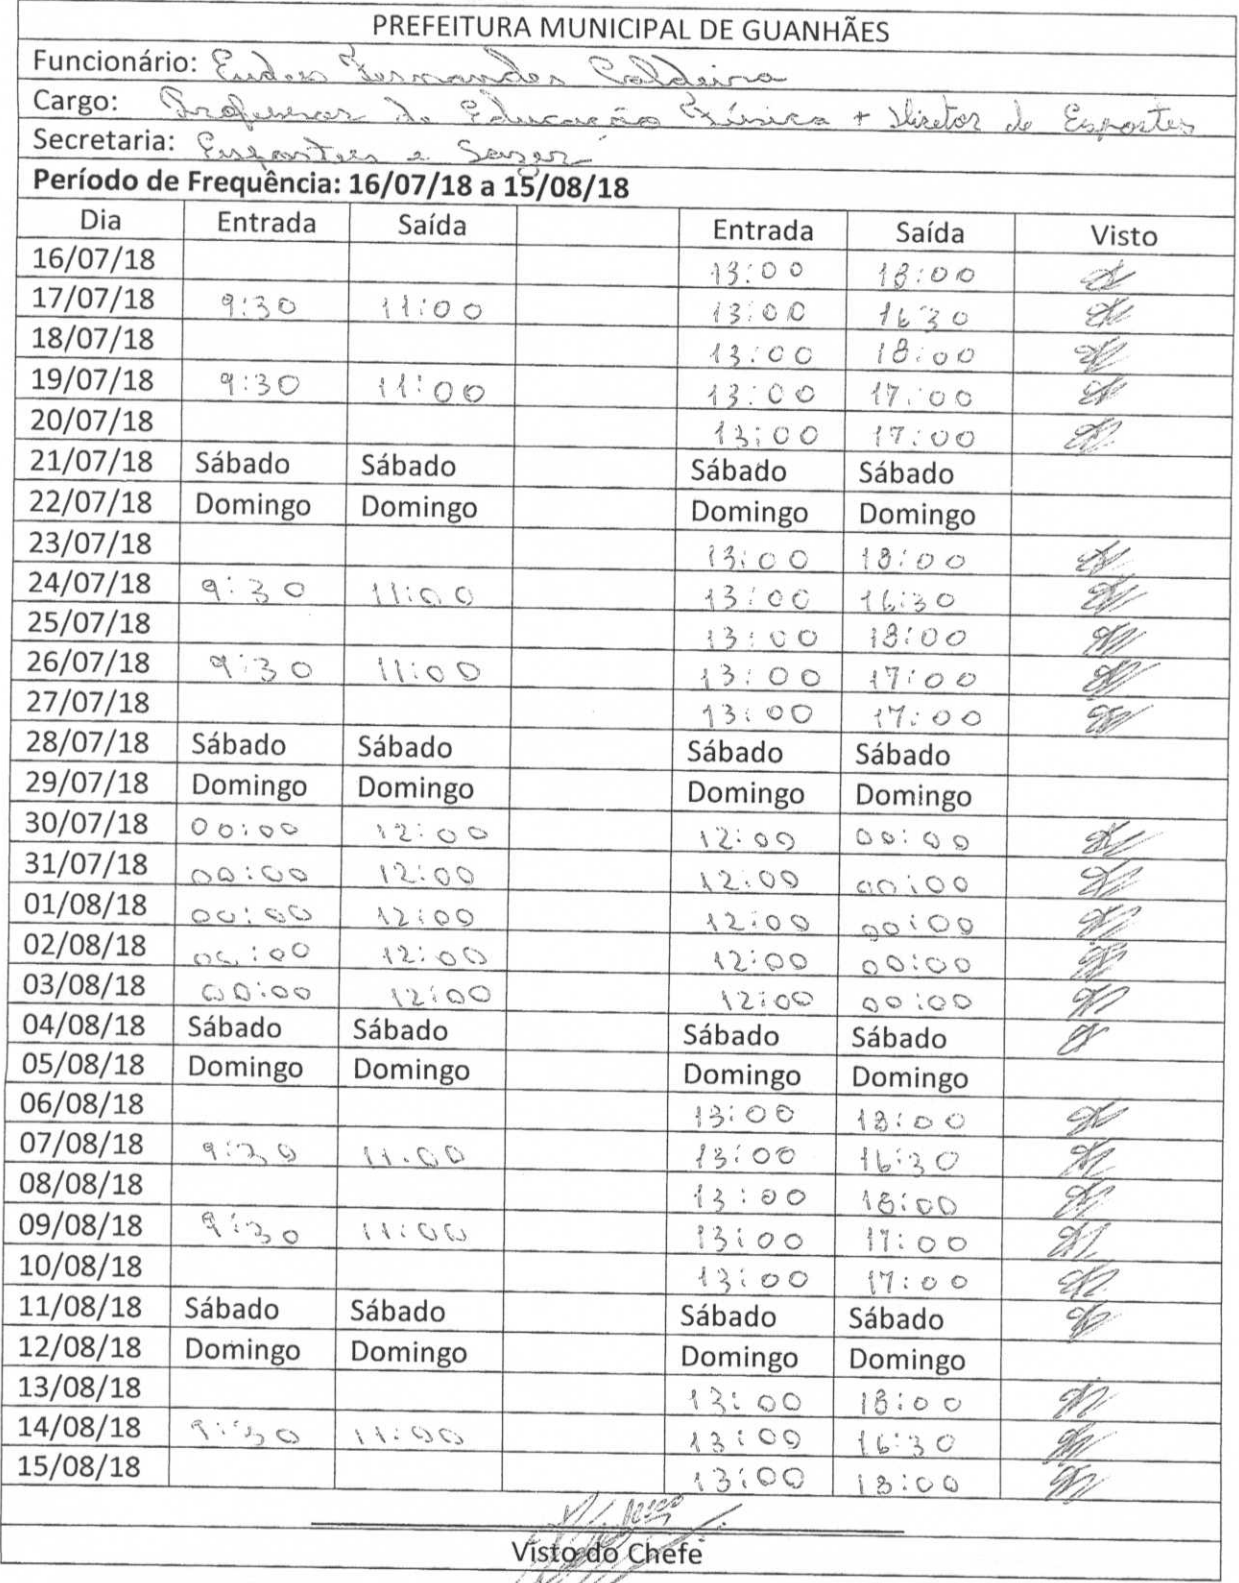 PREFEITURA MUNICIPAL DE GUANHÃES
Funcionário: Eudes Fernandes Caldeira
Cargo: Professor de Educação Física + Diretor de Esportes
Secretaria: Esportes e Lazer
Período de Frequência: 16/07/18 a 15/08/18
Dia Entrada Saída Entrada Saída Visto
16/07/18 13:00 18:00
17/07/18 9:30 11:00 13:00 16:30
18/07/18 13:00 18:00
19/07/18 9:30 11:00 13:00 17:00
20/07/18 13:00 17:00
21/07/18 Sábado Sábado Sábado Sábado
22/07/18 Domingo Domingo Domingo Domingo
23/07/18 13:00 18:00
24/07/18 9:30 11:00 13:00 16:30
25/07/18 13:00 18:00
26/07/18 9:30 11:00 13:00 17:00
27/07/18 13:00 17:00
28/07/18 Sábado Sábado Sábado Sábado
29/07/18 Domingo Domingo Domingo Domingo
30/07/18 00:00 12:00 12:00 00:00
31/07/18 00:00 12:00 12:00 00:00
01/08/18 00:00 12:00 12:00 00:00
02/08/18 00:00 12:00 12:00 00:00
03/08/18 00:00 12:00 12:00 00:00
04/08/18 Sábado Sábado Sábado Sábado
05/08/18 Domingo Domingo Domingo Domingo
06/08/18 13:00 18:00
07/08/18 9:30 11:00 13:00 16:30
08/08/18 13:00 18:00
09/08/18 9:30 11:00 13:00 17:00
10/08/18 13:00 17:00
11/08/18 Sábado Sábado Sábado Sábado
12/08/18 Domingo Domingo Domingo Domingo
13/08/18 13:00 18:00
14/08/18 9:30 11:00 13:00 16:30
15/08/18 13:00 18:00
Visto do Chefe